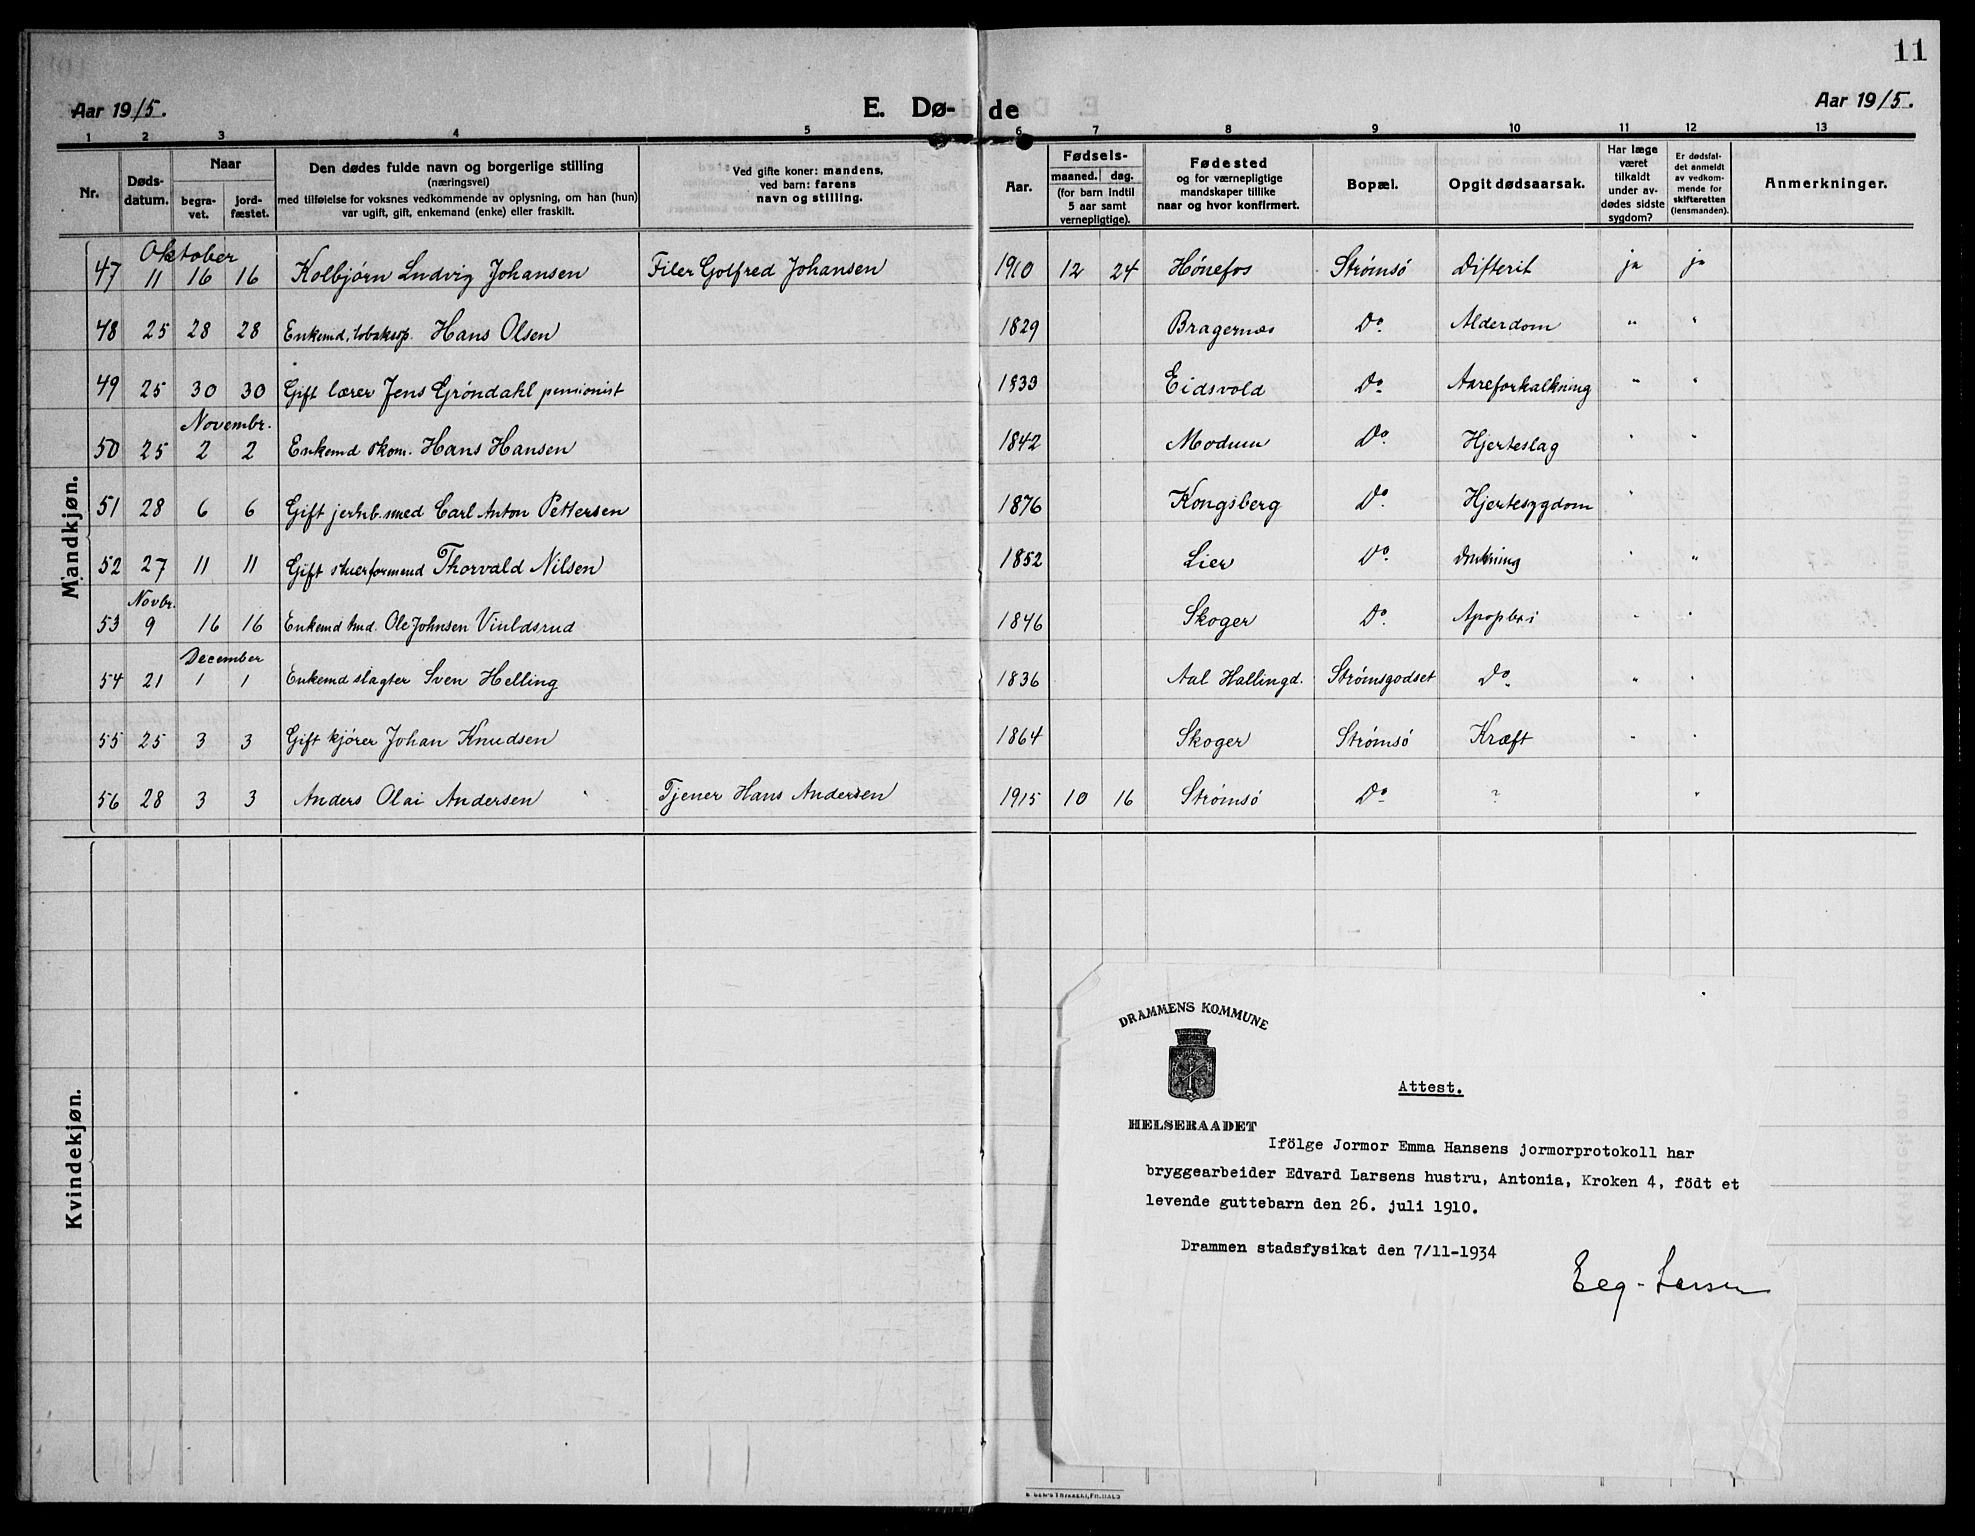 11
Aar 1915.
E. Dø- de
Aar 1915.
1 2 3 4 5 6 7 8 9 10 11 12 13
Nr.
Døds-
datum.
Naar
begra-
vet.
jord-
fæstet.
Den dødes fulde navn og borgerlige stilling
(næringsvei)
med tilføielse for voksnes vedkommende av oplysning, om han (hun)
var ugift, gift, enkemand (enke) eller fraskilt.
Ved gifte koner: mandens,
ved barn: farens
navn og stilling.
Aar.
Fødsels-
maaned. dag.
(for barn indtil
5 aar samt
vernepligtige).
Fødested
og for værnepligtige
mandskaper tillike
naar og hvor konfirmert.
Bopæl.
Opgit dødsaarsak.
Har læge
været
tilkaldt
under av-
dødes sidste
sygdom?
Er dødsfal-
det anmeldt
av vedkom-
mende for
skifteretten
(lensmanden).
Anmerkninger.
Mandkjøn.
Oktober
47 11 16 16 Kolbjørn Ludvig Johansen Filer Golfred Johansen 1910 12 24 Hönefos Strømsö Difterit ja ja
48 25 28 28 Enkemd. Hans Olsen 1829 Bragernæs Do Alderdom " "
49 25 30 30 Gift lærer Jens Gröndahl pensionist 1833 Eidsvold Do Aareforkalkning " "
Novembr.
50 25 2 2 Enkemd skom. Hans Hansen 1842 Modum Do Hjerteslag " "
51 28 6 6 Gift jernb.med Carl Anton Pettersen 1876 Kongsberg Do Hjertesygdom " "
52 27 11 11 Gift stuerformend Thorvald Nilsen 1852 Lier Do " "
Novbr.
53 9 16 16 Enkemd Ole Johnsen 1846 Skoger Do " "
December
54 21 1 1 Enkemd slagter Sven Helling 1836 Aal Hallingd. Strømsgodset Do " "
55 25 3 3 Gift kjører Johan Knudsen 1864 Skoger Strømsö Kræft " "
56 28 3 3 Anders Olai Andersen Tjener Hans Andersen 1915 10 16 Strømsö Do ? "
Kvindekjøn.
DRAMMENS KOMMUNE
HELSERAADET
Attest.
Ifölge Jormor Emma Hansens jormorprotokoll har
bryggearbeider Edvard Larsens hustru, Antonia, Kroken 4, födt et
levende guttebarn den 26. juli 1910.
Drammen stadsfysikat den 7/11-1934
Eeg-Larsen